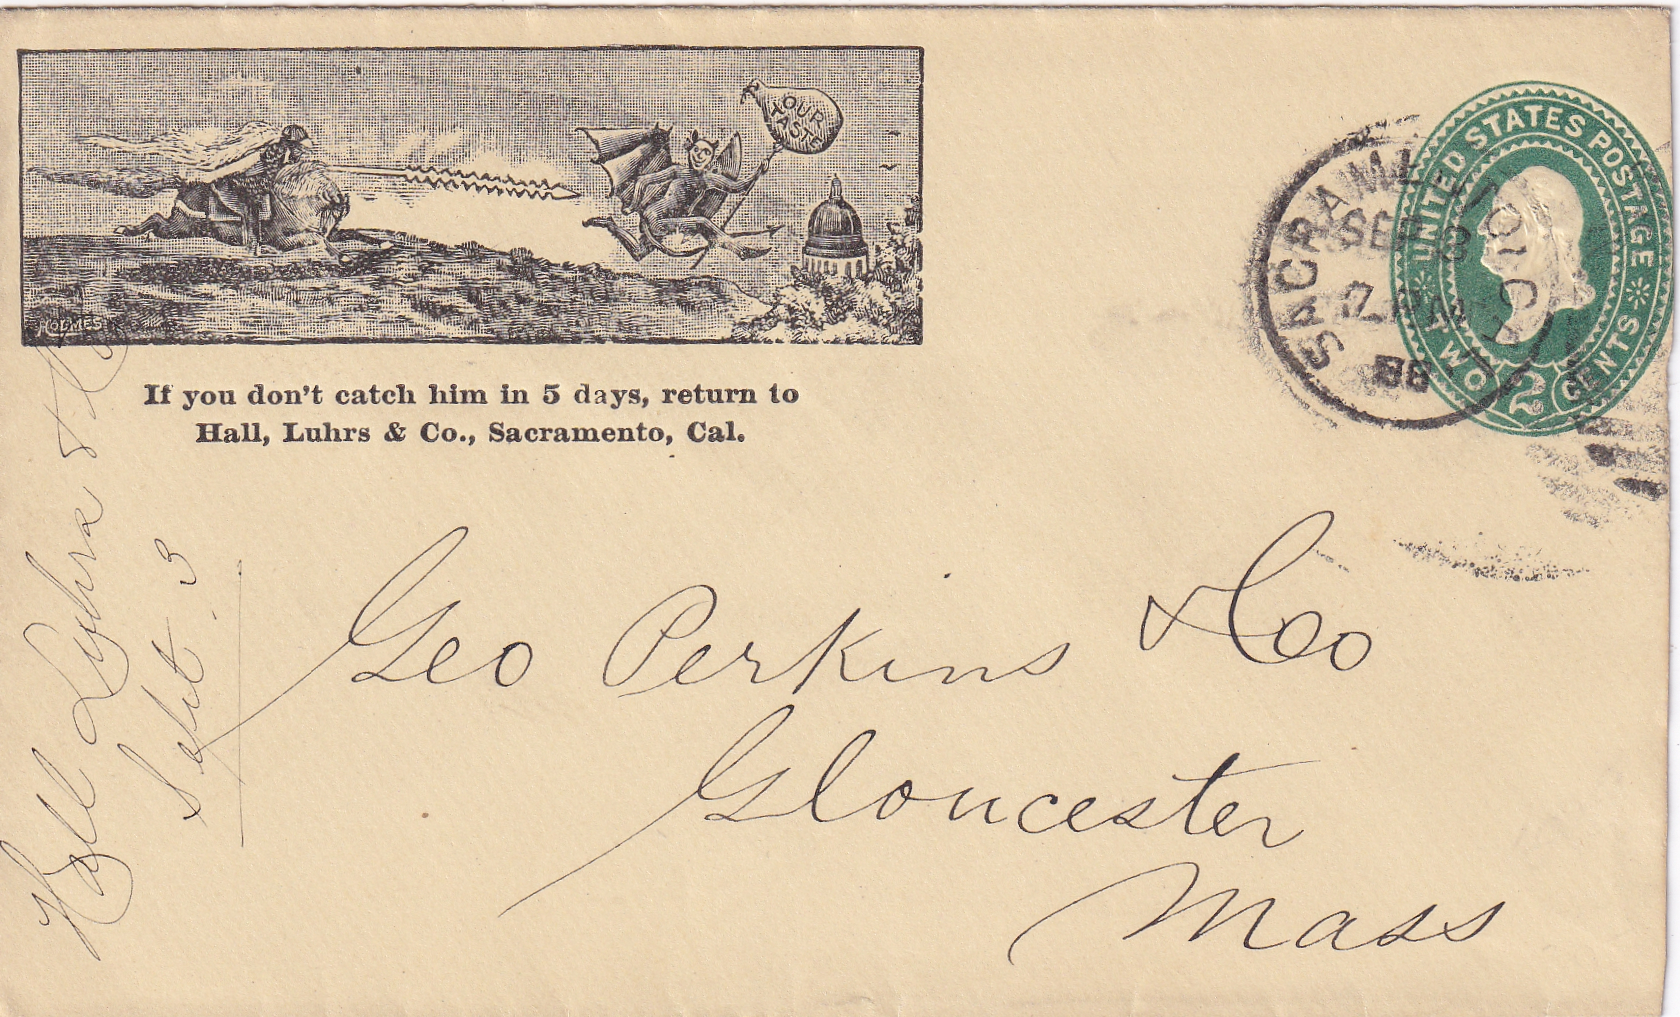 OUR
TASTE
HOLMES
If you don't catch him in 5 days, return to
Hall, Luhrs & Co., Sacramento, Cal.
UNITED STATES POSTAGE
TWO CENTS
2
SACRAMENTO CAL
SEP 3
7
88
Geo Perkins & Co
Gloucester
Mass
Hall Luhrs & Co
Sept. 3